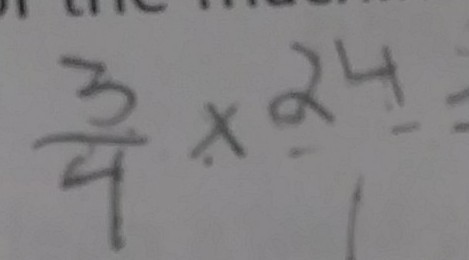 3/4 x 24/1 =